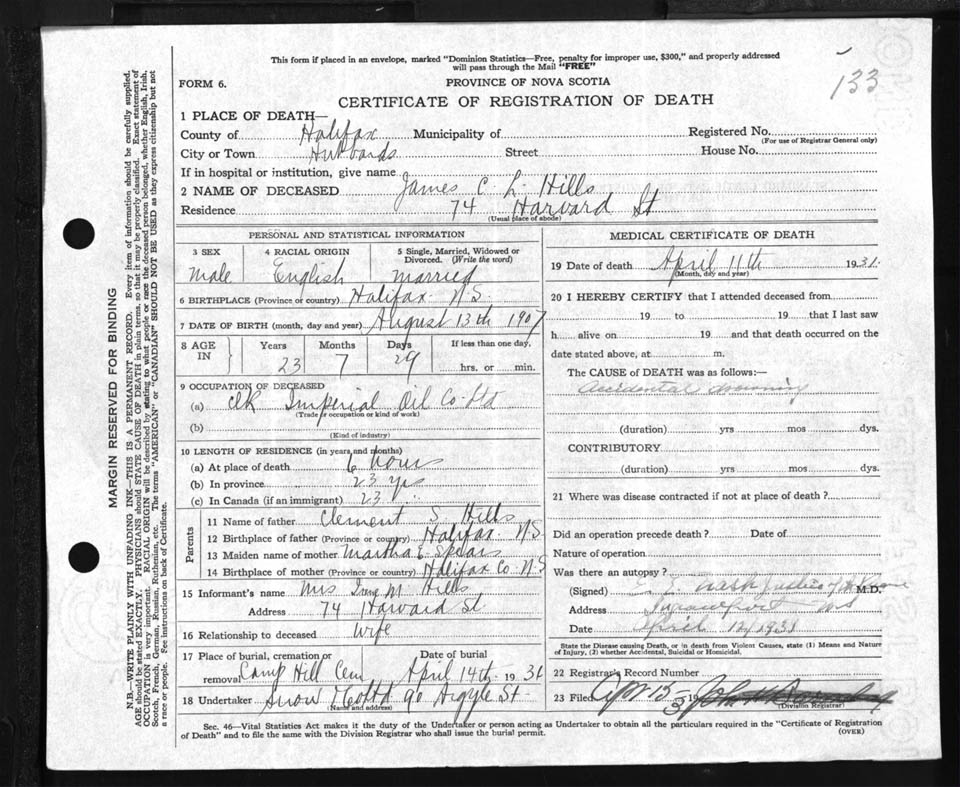 This form if placed in an envelope, marked "Dominion Statistics—Free, penalty for improper use, $300," and properly addressed
will pass through the Mail "FREE"
133
FORM 6.
PROVINCE OF NOVA SCOTIA
CERTIFICATE OF REGISTRATION OF DEATH
1 PLACE OF DEATH—
County of Halifax Municipality of Registered No.
(For use of Registrar General only)
City or Town Hubbards Street House No.
If in hospital or institution, give name
2 NAME OF DECEASED James C. L. Hills
Residence 74 Harvard St
(Usual place of abode)
PERSONAL AND STATISTICAL INFORMATION
3 SEX 4 RACIAL ORIGIN 5 Single, Married, Widowed or Divorced. (Write the word)
Male English Married
6 BIRTHPLACE (Province or country) Halifax N.S.
7 DATE OF BIRTH (month, day and year) August 13th 1907
8 AGE IN Years Months Days If less than one day,
23 7 29 hrs. or min.
9 OCCUPATION OF DECEASED
(a) clk Imperial Oil Co Ltd
(Trade or occupation or kind of work)
(b)
(Kind of industry)
10 LENGTH OF RESIDENCE (in years and months)
(a) At place of death 6 hours
(b) In province 23 yrs
(c) In Canada (if an immigrant) 23
Parents
11 Name of father Clement S. Hills
12 Birthplace of father (Province or country) Halifax N.S.
13 Maiden name of mother Martha E. Spears
14 Birthplace of mother (Province or country) Halifax Co N.S
15 Informant's name Mrs Irene M Hills
Address 74 Harvard St
16 Relationship to deceased Wife
17 Place of burial, cremation or removal Date of burial
Camp Hill Cem April 14th 1931
18 Undertaker Snow & Co Ltd 90 Argyle St
(Name and address)
MEDICAL CERTIFICATE OF DEATH
19 Date of death April 11th 1931.
(Month, day and year)
20 I HEREBY CERTIFY that I attended deceased from
19 to 19 that I last saw
h alive on 19 and that death occurred on the
date stated above, at m.
The CAUSE OF DEATH was as follows:—
Accidental drowning
(duration) yrs mos dys.
CONTRIBUTORY
(duration) yrs mos dys.
21 Where was disease contracted if not at place of death?
Did an operation precede death? Date of
Nature of operation
Was there an autopsy?
(Signed) Nash Justice of M.D.
Address N S
Date April 12/1931
State the Disease causing Death, or in death from Violent Causes, state (1) Means and Nature
of Injury, (2) whether Accidental, Suicidal or Homicidal.
22 Registrar's Record Number
23 Filed Apr 15 1931 John
(Division Registrar)
Sec. 46—Vital Statistics Act makes it the duty of the Undertaker or person acting as Undertaker to obtain all the particulars required in the "Certificate of Registration
of Death" and to file the same with the Division Registrar who shall issue the burial permit.
(OVER)
MARGIN RESERVED FOR BINDING
N.B.—WRITE PLAINLY WITH UNFADING INK—THIS IS A PERMANENT RECORD. Every item of information should be carefully supplied.
AGE should be stated EXACTLY. PHYSICIANS should STATE CAUSE OF DEATH in plain terms, so that it may be properly classified. Exact statement of
OCCUPATION is very important. RACIAL ORIGIN will be described by stating to what people or race the deceased person belonged, whether English, Irish,
Scotch, French, German, Russian, Ruthenian, etc. The terms "AMERICAN" or "CANADIAN" SHOULD NOT BE USED as they express citizenship but not
a race or people. Fee instructions on back of Certificate.